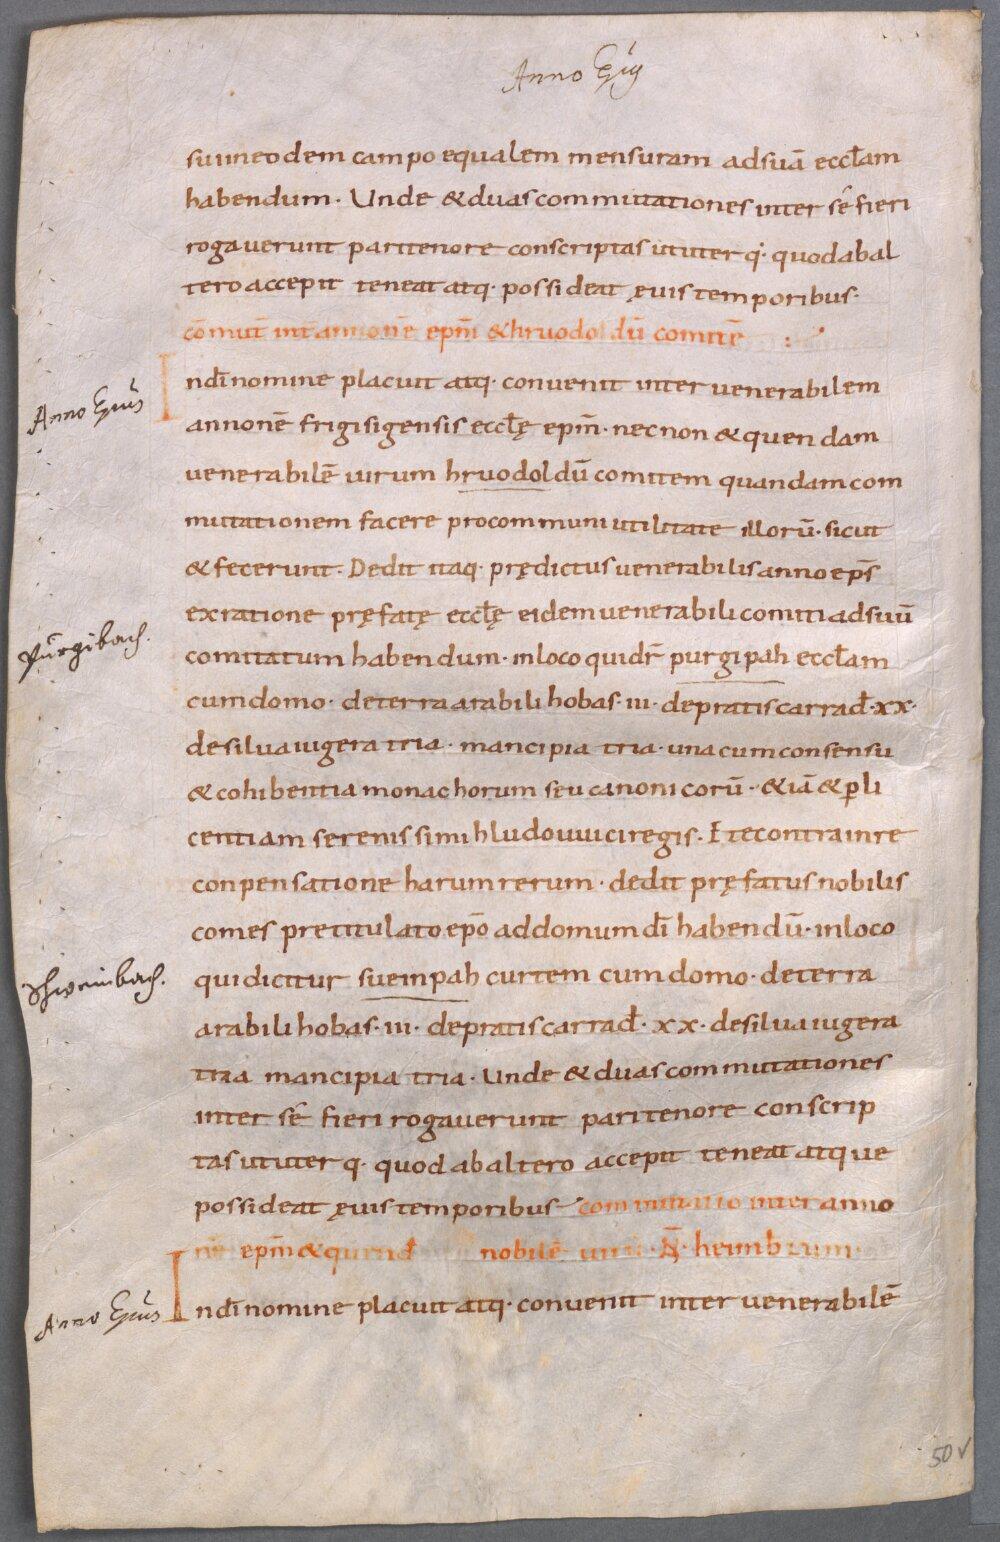 Anno Eṕs
suum eodem campo equalem mensuram ad suā eccłam
habendum · Unde & duas commutationes inter se fieri
rogaverunt pari tenore conscriptas ut uterq· quod ab al
tero accepit teneat atq· possideat ęvis temporibus·
cōmut̄ int̄ annonē epm̄ & hruodoldū comitē :
Anno Eṕus
In dī nomine placuit atq· convenit inter venerabilem
annonē frigisigensis eccłę epm̄· necnon & quendam
venerabilē virum hruodoldū comitem quandam com
mutationem facere pro communi utilitate illorū· sicut
& fecerunt· Dedit itaq· prędictus venerabilis anno ep̄s
ex ratione pręfatę eccłę eidem venerabili comiti ad suū
Purgibach.
comitatum habendum· in loco qui dr̄ purgipah eccłam
cum domo· de terra arabili hobas· III· de pratis carrad̄· XX·
de silva iugera tria· mancipia tria· una cum consensu
& cohibentia monachorum seu canonicorū· & iā & p̱ li
centiam serenissimi hludouuici regis· E t e contra in re
conpensatione harum rerum· dedit pręfatus nobilis
comes pretitulato epō ad domum dī habendū· in loco
Schweinbach.
qui dicitur sueinpah curtem cum domo· de terra
arabili hobas· III· de pratis carrad̄· XX· de silva iugera
tria mancipia tria· Unde & duas commutationes
inter se fieri rogaverunt pari tenore conscrip
tas ut uterq· quod ab altero accepit teneat atque
possideat ęvis temporibus· Commutatio inter anno
nē epm̄ & quend̄ nobilē virū· N̄· heimbrium·
Anno Eṕus
In dī nomine placuit atq· convenit inter venerabilē
50v